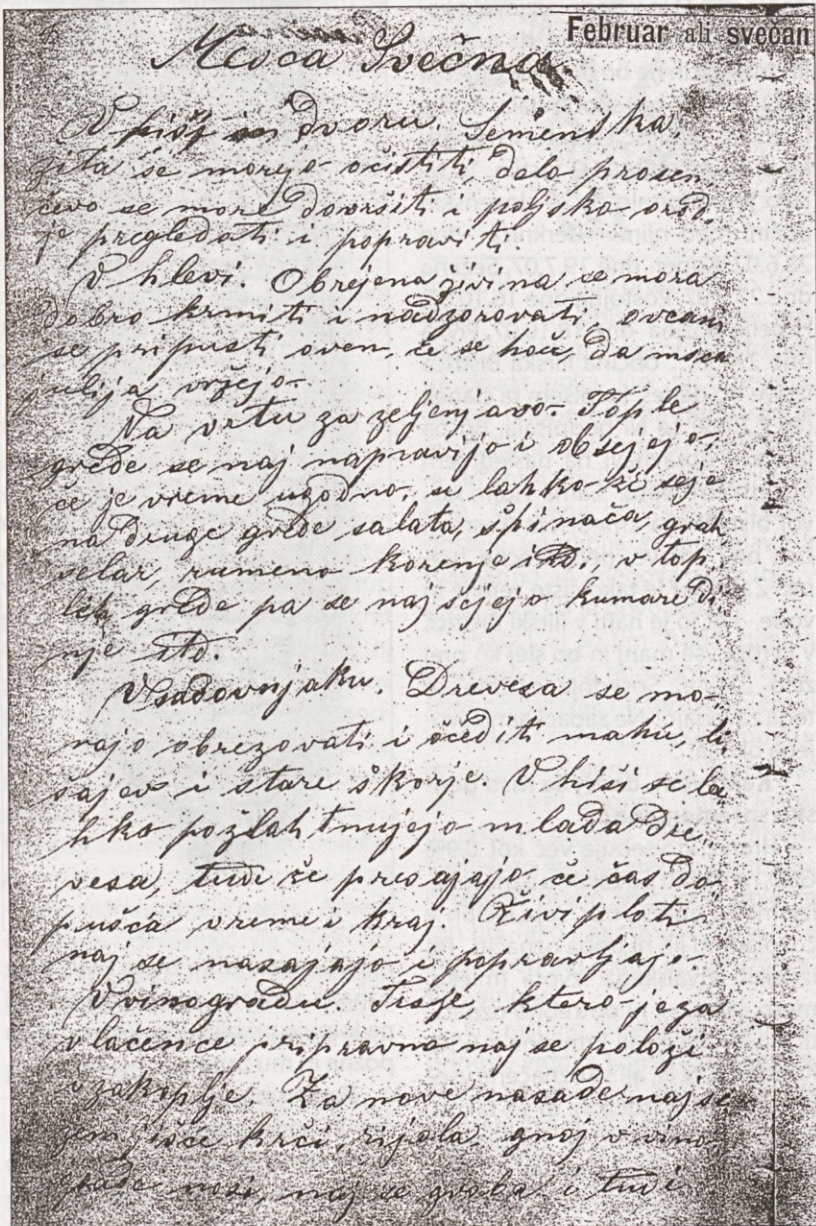 Februar ali svečan
Meseca Svečna
V hiši in dvoru. Semenska
žita se morejo očistiti, delo prosen
čevo se more dovršiti i poljsko orod
je pregledati i popraviti
V hlevi. Obrejena živina se mora
dobro krmiti i nadzorovati, ovcam
se pripusti oven, če se hoče, da
julija vržejo.
Na vrtu za zeljenjavo. Tople
grede se naj napravijo i obsejejo,
če je vreme ugodno, se lahko že seje
na druge grede salata, špinača, grah,
selar, rumeno korenje itd., v top
lih grede pa se naj sejejo kumare di
nje itd.
V sadovnjaku. Drevesa se mo-
rajo obrezovati i očediti mahu, li
sajev i stare škorje. V hiši se la
hko požlahtnujejo mlada dre-
vesa, tudi že presajajo če čas do
pušča vreme i kraj. Živi ploti
naj se nasajajo i popravljajo.
V vinogradu. Trsje, ktero je za
vlačence pripravno naj se položi
i zakoplje. Za nove nasade naj se
zemljišče krči, rijola, gnoj v vino
grade nosi, naj se groba i tudi